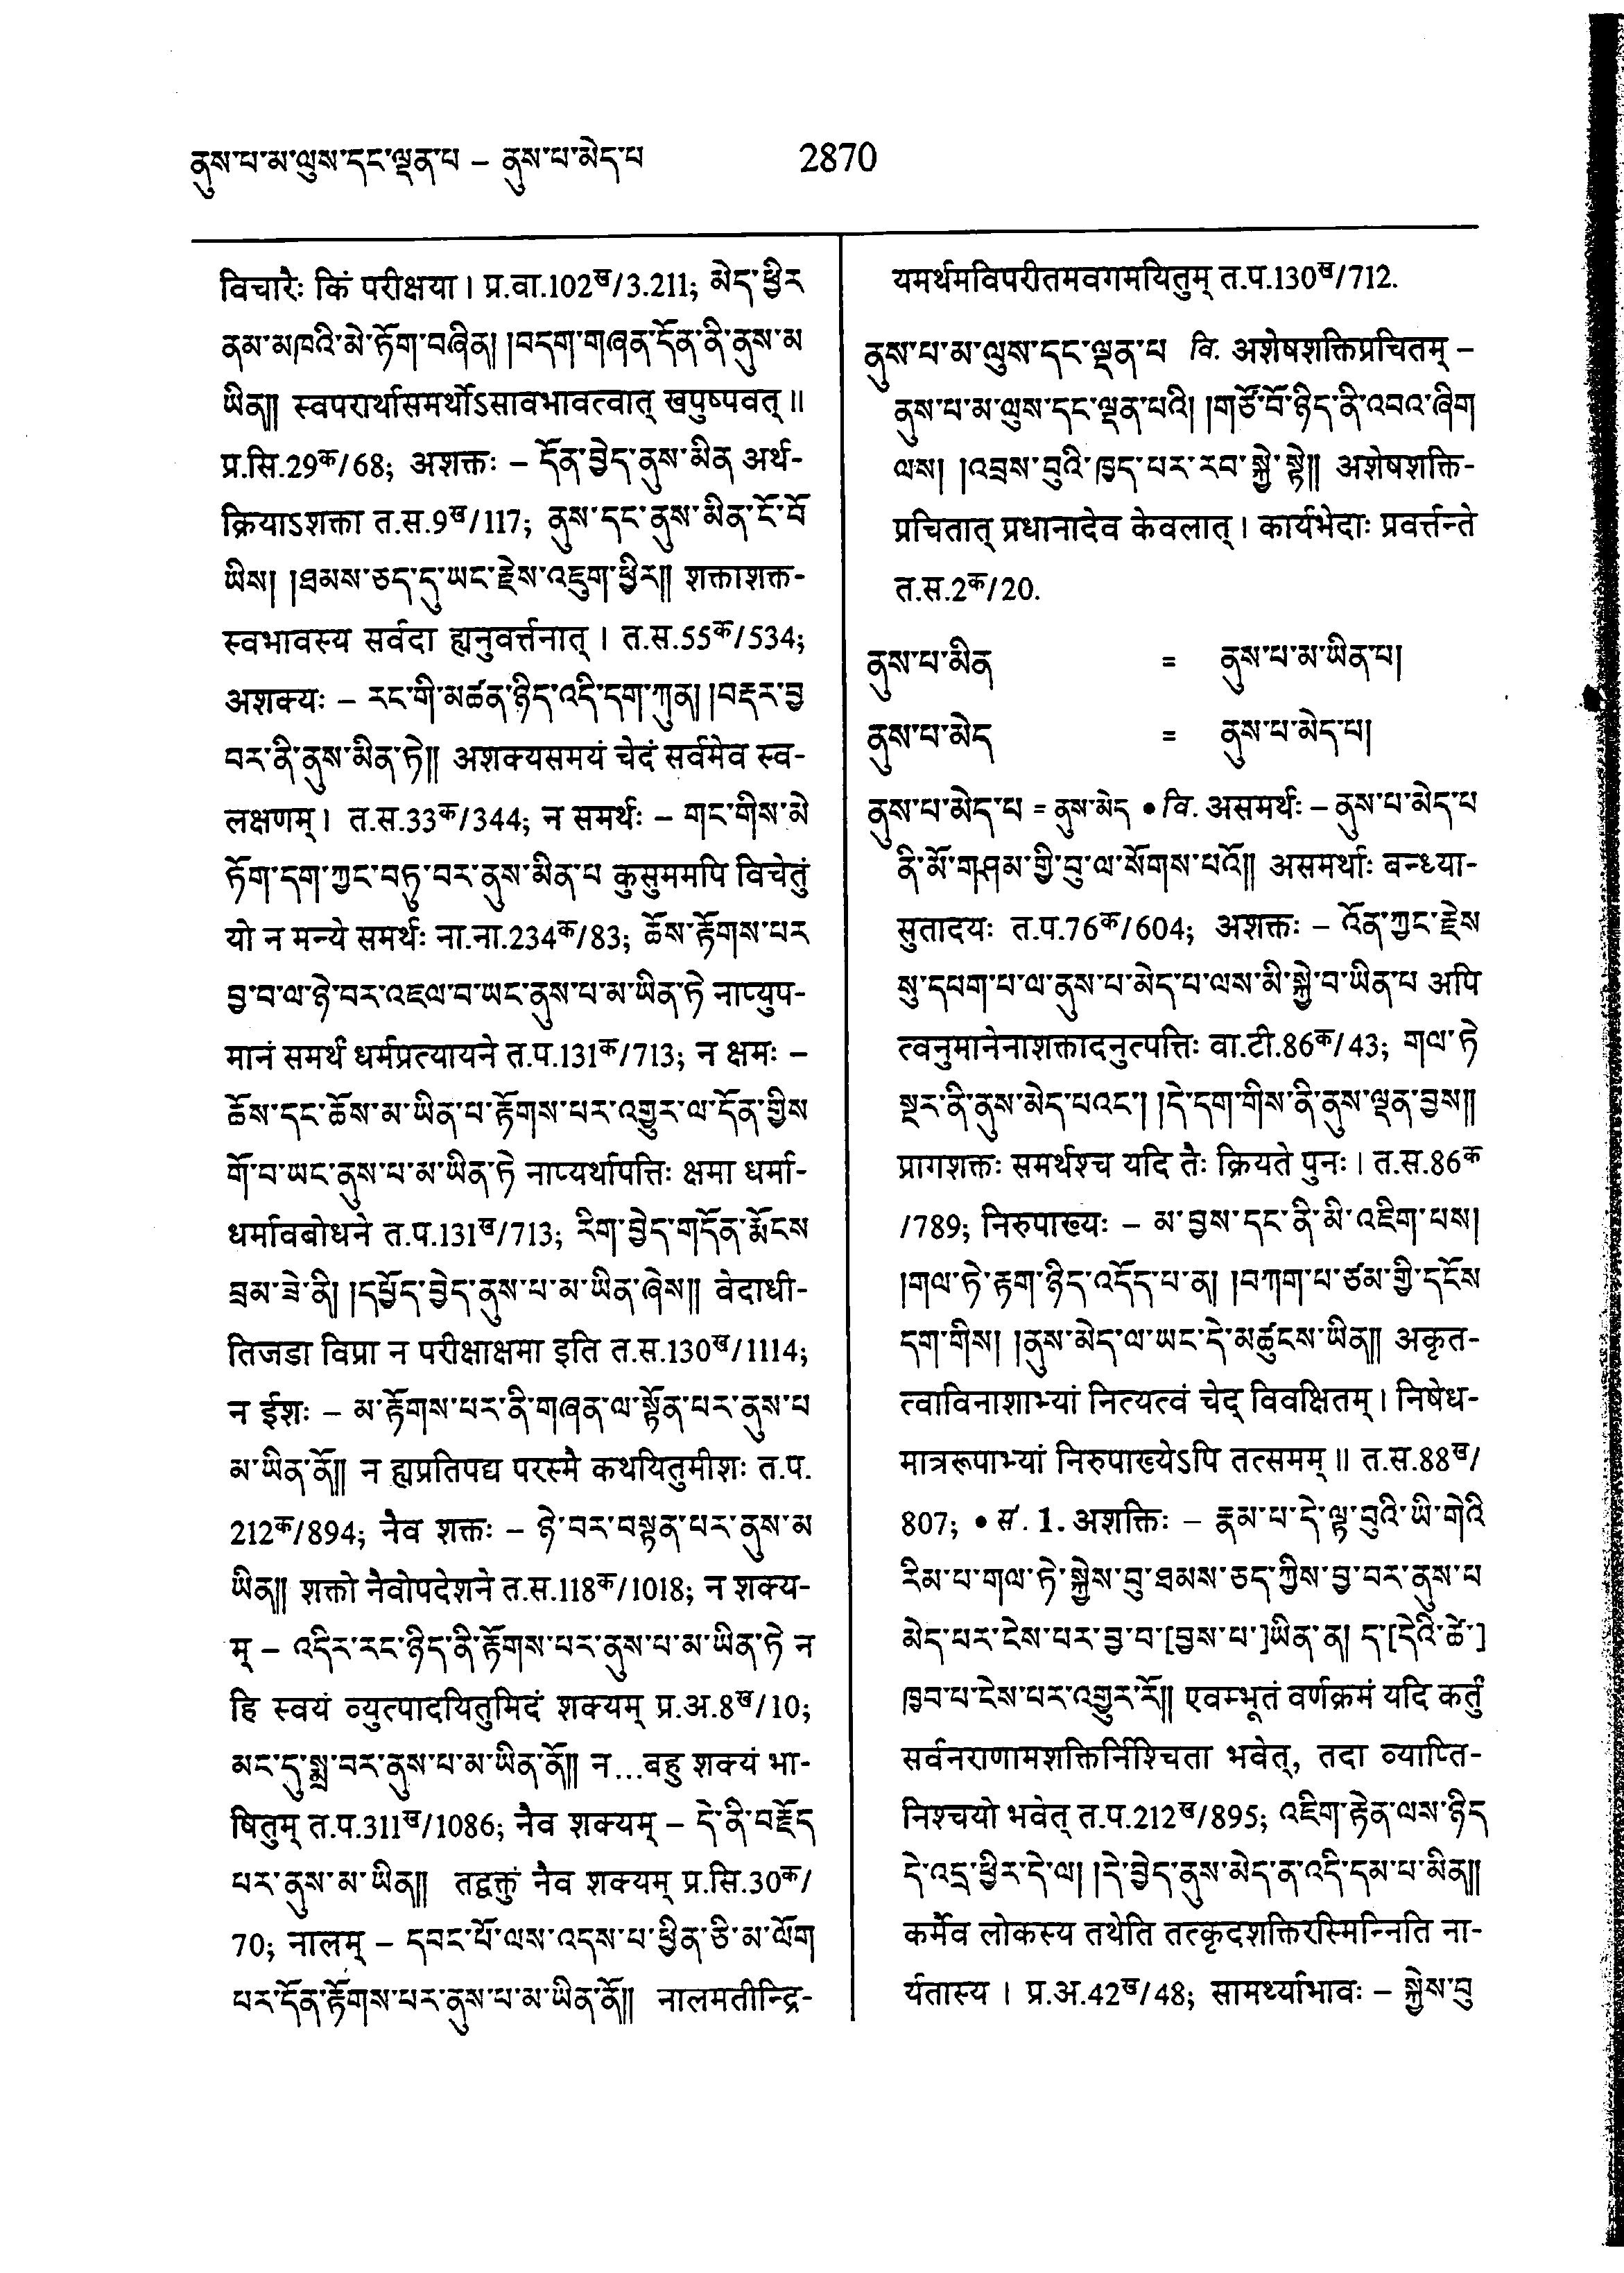 ནུས་པ་མ་ལུས་དང་ལྡན་པ – ནུས་པ་མེད་པ
2870
विचारैः किं परीक्षया। प्र.वा.102ख/3.211; མེད་ཕྱིར
ནམ་མཁའི་མེ་ཏོག་བཞིན། །བདག་གཞན་དོན་ནི་ནུས་མ
ཡིན།། स्वपरार्थासमर्थोऽसावभावत्वात् खपुष्पवत्॥
प्र.सि.29क/68; अशक्तः – དོན་བྱེད་ནུས་མིན अर्थ-
क्रियाऽशक्ता त.स.9ख/117; ནུས་དང་ནུས་མིན་ངོ་བོ
ཡིས། །ཐམས་ཅད་དུ་ཡང་རྗེས་འཇུག་ཕྱིར།། शक्ताशक्त-
स्वभावस्य सर्वदा ह्यनुवर्त्तनात्। त.स.55क/534;
अशक्यः – རང་གི་མཚན་ཉིད་འདི་དག་ཀུན། །བརྡར་བྱ
བར་ནི་ནུས་མིན་ཏེ།། अशक्यसमयं चेदं सर्वमेव स्व-
लक्षणम्। त.स.33क/344; न समर्थः – གང་གིས་མེ
ཏོག་དག་ཀྱང་བཏུ་བར་ནུས་མིན་པ कुसुममपि विचेतुं
यो न मन्ये समर्थः ना.ना.234क/83; ཆོས་རྟོགས་པར
བྱ་བ་ལ་ཉེ་བར་འཇལ་བ་ཡང་ནུས་པ་མ་ཡིན་ཏེ नाप्युप-
मानं समर्थं धर्मप्रत्यायने त.प.131क/713; न क्षमः –
ཆོས་དང་ཆོས་མ་ཡིན་པ་རྟོགས་པར་འགྱུར་ལ་དོན་གྱིས
གོ་བ་ཡང་ནུས་པ་མ་ཡིན་ཏེ नाप्यर्थापत्तिः क्षमा धर्मा-
धर्मावबोधने त.प.131ख/713; རིག་བྱེད་གདོན་རྨོངས
བྲམ་ཟེ་ནི། །དཔྱོད་བྱེད་ནུས་པ་མ་ཡིན་ཞེས།། वेदाधी-
तिजडा विप्रा न परीक्षाक्षमा इति त.स.130ख/1114;
न ईशः – མ་རྟོགས་པར་ནི་གཞན་ལ་སྟོན་པར་ནུས་པ
མ་ཡིན་ནོ།། न ह्यप्रतिपद्य परस्मै कथयितुमीशः त.प.
212क/894; नैव शक्तः – ཉེ་བར་བསྟན་པར་ནུས་མ
ཡིན།། शक्तो नैवोपदेशने त.स.118क/1018; न शक्य-
म् – འདིར་རང་ཉིད་ནི་རྟོགས་པར་ནུས་པ་མ་ཡིན་ཏེ न
हि स्वयं व्युत्पादयितुमिदं शक्यम् प्र.अ.8ख/10;
མང་དུ་སྨྲ་བར་ནུས་པ་མ་ཡིན་ནོ།། न...बहु शक्यं भा-
षितुम् त.प.311ख/1086; नैव शक्यम् – དེ་ནི་བརྗོད
པར་ནུས་མ་ཡིན།། तद्वक्तुं नैव शक्यम् प्र.सि.30क/
70; नालम् – དབང་པོ་ལས་འདས་པ་ཕྱིན་ཅི་མ་ལོག
པར་དོན་རྟོགས་པར་ནུས་པ་མ་ཡིན་ནོ།། नालमतीन्द्रि-
यमर्थमविपरीतमवगमयितुम् त.प.130ख/712.
ནུས་པ་མ་ལུས་དང་ལྡན་པ वि. अशेषशक्तिप्रचितम् –
ནུས་པ་མ་ལུས་དང་ལྡན་པའི། །གཙོ་བོ་ཉིད་ནི་འབའ་ཞིག
ལས། །འབྲས་བུའི་ཁྱད་པར་རབ་སྐྱེ་སྟེ།། अशेषशक्ति-
प्रचितात् प्रधानादेव केवलात्। कार्यभेदाः प्रवर्त्तन्ते
त.स.2क/20.
ནུས་པ་མིན = ནུས་པ་མ་ཡིན་པ།
ནུས་པ་མེད = ནུས་པ་མེད་པ།
ནུས་པ་མེད་པ = ནུས་མེད • वि. असमर्थः – ནུས་པ་མེད་པ
ནི་མོ་གཤམ་གྱི་བུ་ལ་སོགས་པའོ།། असमर्थाः बन्ध्या-
सुतादयः त.प.76क/604; अशक्तः – འོན་ཀྱང་རྗེས
སུ་དཔག་པ་ལ་ནུས་པ་མེད་པ་ལས་མི་སྐྱེ་བ་ཡིན་པ अपि
त्वनुमानेनाशक्तादनुत्पत्तिः वा.टी.86क/43; གལ་ཏེ
སྔར་ནི་ནུས་མེད་པའང་། །དེ་དག་གིས་ནི་ནུས་ལྡན་བྱས།།
प्रागशक्तः समर्थश्च यदि तैः क्रियते पुनः। त.स.86क
/789; निरुपाख्यः – མ་བྱས་དང་ནི་མི་འཇིག་པས།
།གལ་ཏེ་རྟག་ཉིད་འདོད་པ་ན། །བཀག་པ་ཙམ་གྱི་དངོས
དག་གིས། །ནུས་མེད་ལ་ཡང་དེ་མཚུངས་ཡིན།། अकृत-
त्वाविनाशाभ्यां नित्यत्वं चेद् विवक्षितम्। निषेध-
मात्ररूपाभ्यां निरुपाख्येऽपि तत्समम्॥ त.स.88ख/
807; • सं. 1. अशक्तिः – རྣམ་པ་དེ་ལྟ་བུའི་ཡི་གེའི
རིམ་པ་གལ་ཏེ་སྐྱེས་བུ་ཐམས་ཅད་ཀྱིས་བྱ་བར་ནུས་པ
མེད་པར་ངེས་པར་བྱ་བ་[བྱས་པ་]ཡིན་ན། ད་[དེའི་ཚེ་]
ཁྱབ་པ་ངེས་པར་འགྱུར་རོ།། एवम्भूतं वर्णक्रमं यदि कर्तुं
सर्वनराणामशक्तिर्निश्चिता भवेत्, तदा व्याप्ति-
निश्चयो भवेत् त.प.212ख/895; འཇིག་རྟེན་ལས་ཉིད
དེ་འདྲ་ཕྱིར་དེ་ལ། །དེ་བྱེད་ནུས་མེད་ན་འདི་དམ་པ་མིན།།
कर्मैव लोकस्य तथेति तत्कृदशक्तिरस्मिन्निति ना-
र्यतास्य। प्र.अ.42ख/48; सामर्थ्याभावः – སྐྱེས་བུ